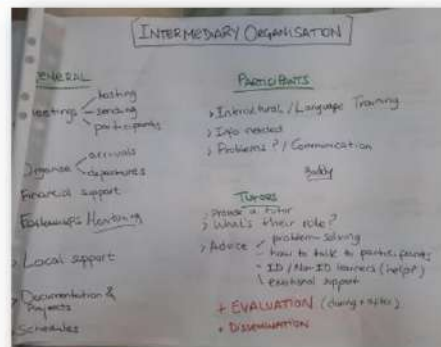 INTERMEDIARY ORGANISATION
GENERAL
Meetings
hosting
sending
participants
Organise
arrivals
departures
Financial support
Monitoring
> Local support
> Documentation &
Projects
Schedules
PARTICIPANTS
> Intercultural / Language Training
> Info needed
> Problems? / Communication
Buddy
TUTORS
> Provide a tutor
> What's their role?
> Advice
problem-solving
how to talk to participants
ID / Non-ID learners (help?)
emotional support
+ EVALUATION (during + after)
+ DISSEMINATION